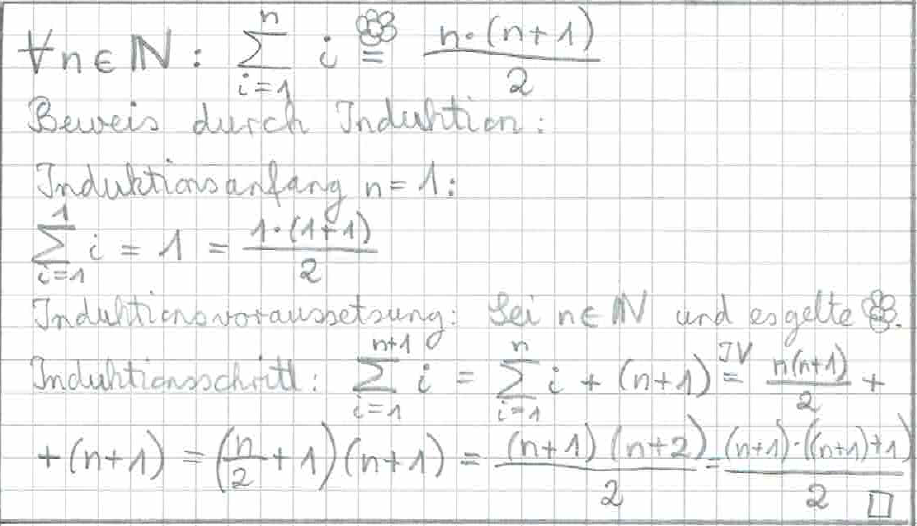 ∀n∈ℕ: ∑_{i=1}^{n} i = n·(n+1)/2
Beweis durch Induktion:
Induktionsanfang n=1:
∑_{i=1}^{1} i = 1 = 1·(1+1)/2
Induktionsvoraussetzung: Sei n∈ℕ und es gelte ❀.
Induktionsschritt: ∑_{i=1}^{n+1} i = ∑_{i=1}^{n} i + (n+1) =^{IV} n(n+1)/2 +
+(n+1) = (n/2+1)(n+1) = (n+1)(n+2)/2 = (n+1)·((n+1)+1)/2 □